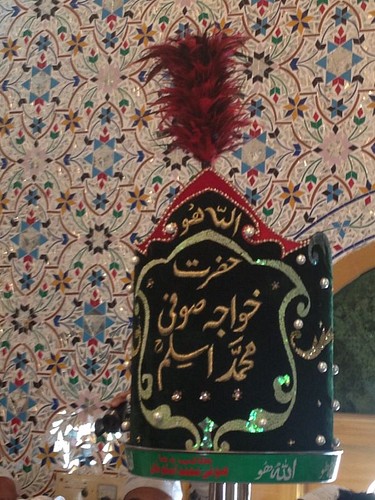 اللہ ھُو
حضرت
خواجہ صوفی
محمّد اسلم
اللہ ھو